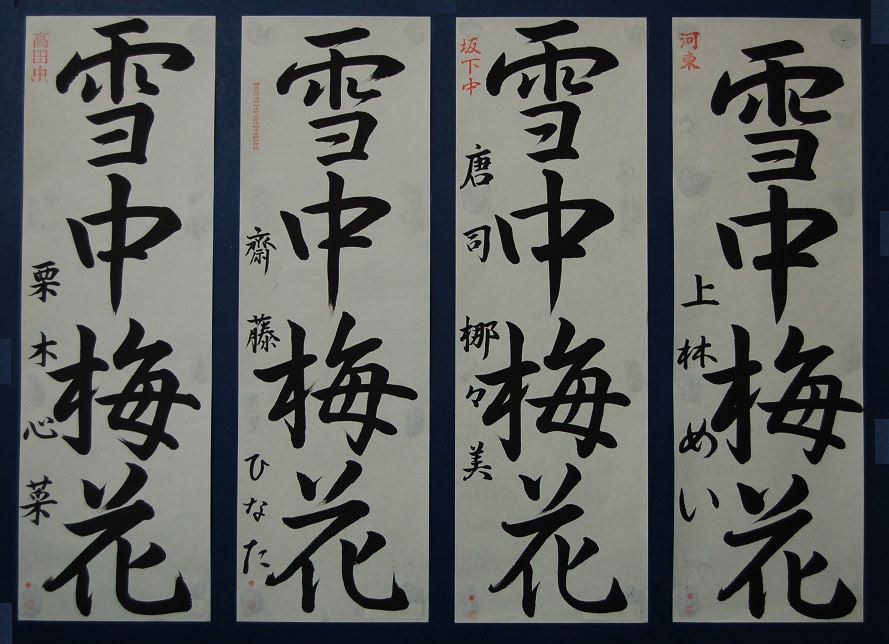 高田中
雪中梅花
栗木心菜
雪中梅花
齋藤ひなた
坂下中
雪中梅花
唐司梛々美
河東
雪中梅花
上林めい